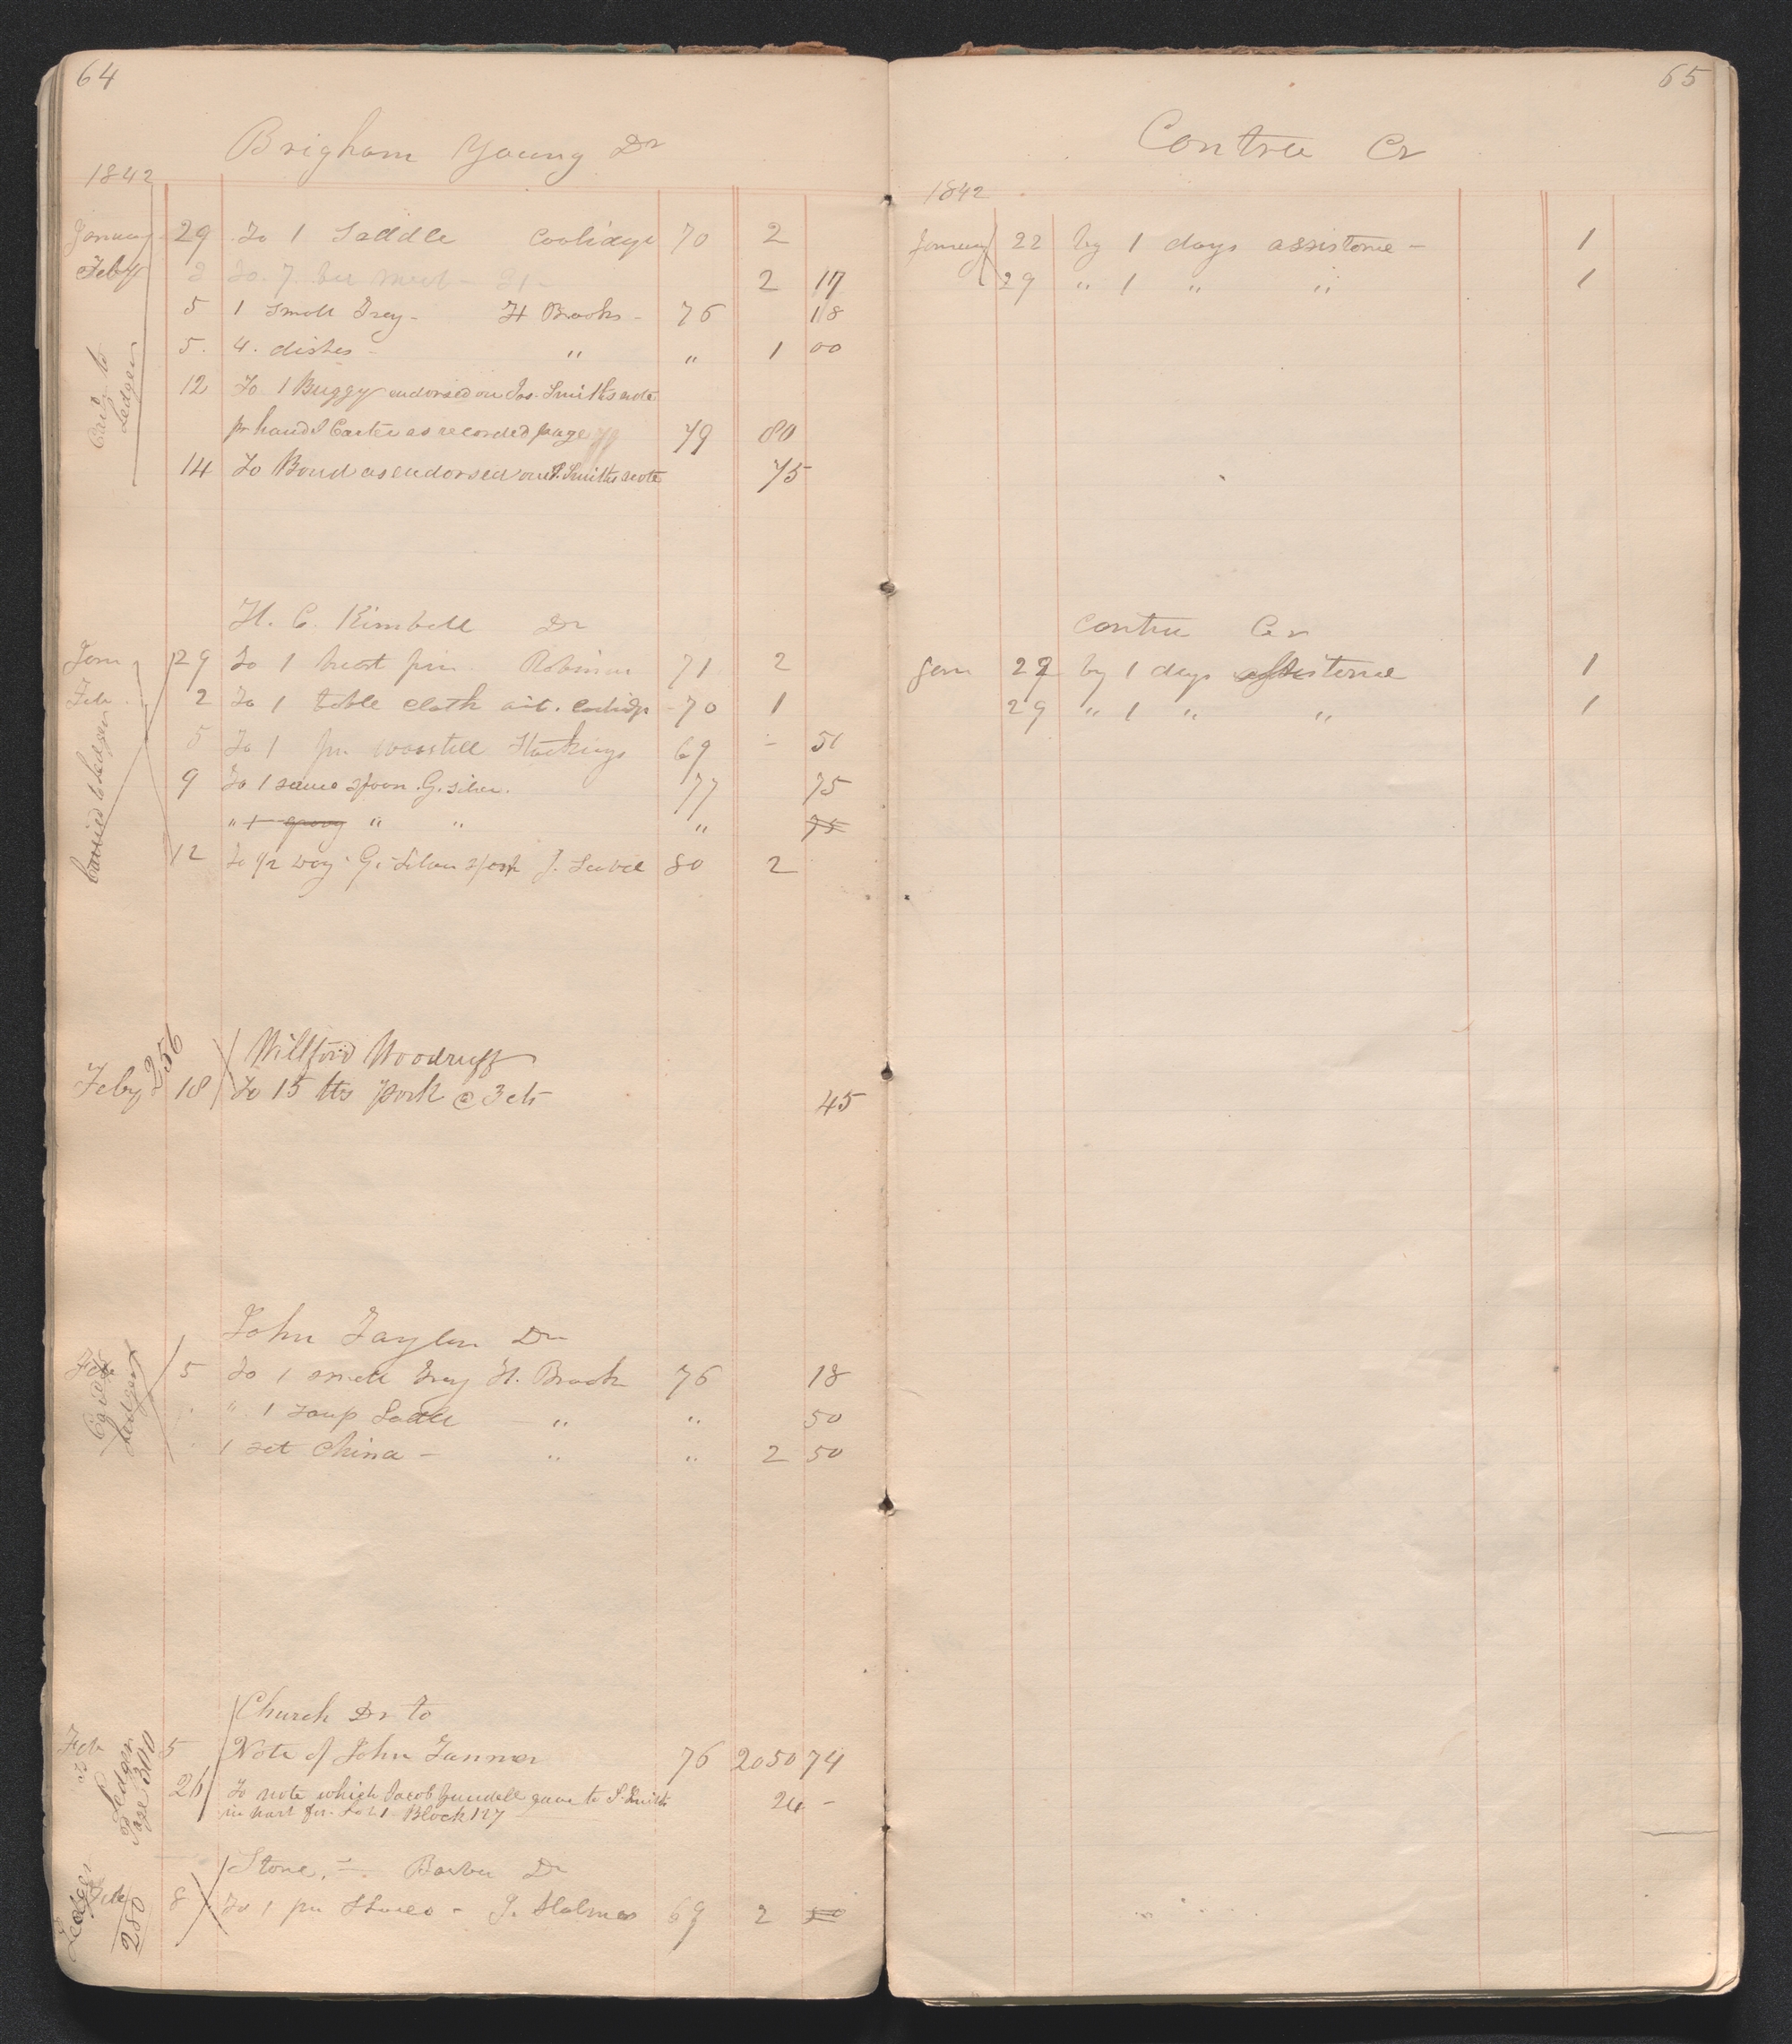 64
Brigham Young Dr
1842
January 29 To 1 Saddle Coolidge 70 2
Feby 2 To 7. 2 17
5 1 Small Trey - H Brooks - 76 18
5. 4. dishes - " " 1 00
Card to Ledger
12 To 1 Buggy endorsed on Jos. Smiths note
pr hand J Carter as recorded page 79 79 80
14 To Bond as endorsed on J. Smiths note 75
H. C. Kimbell Dr
Jan 29 To 1 breast pin. Robinson 71 2
Feb. 2 To 1 table cloth Coolidge - 70 1
5 To 1 pr. Woostell Stockings 69 - 51
9 To 1 sauce spoon. G. silver. 77 75
" 1 gravy " " " 75
12 To 1/2 Doz. G. Silver 80 2
Carried to Ledger
256
Willford Woodruff
Feby 18 To 15 lbs pork @ 3 cts 45
John Taylor Dr
Feb 5 To 1 small trey H. Brook 76 18
" 1 soup Ladle " " 50
1 set China - " " 2 50
Card to Ledger
Church Dr to
Feb 5 Note of John Tanner 76 2050 74
26 To note which Jacob gave to J. Smith 24 -
in part for Lot 1 Block 127
Ledger Page 300
Store. - Barber Dr
Feb 8 To 1 pr Shoes - J. Holmes 69 2 50
Ledger 280
65
Contra Cr
1842
January 22 by 1 days assistance - 1
29 " 1 " " 1
Contra Cr
Jan 22 by 1 days assistance 1
29 " 1 " " 1